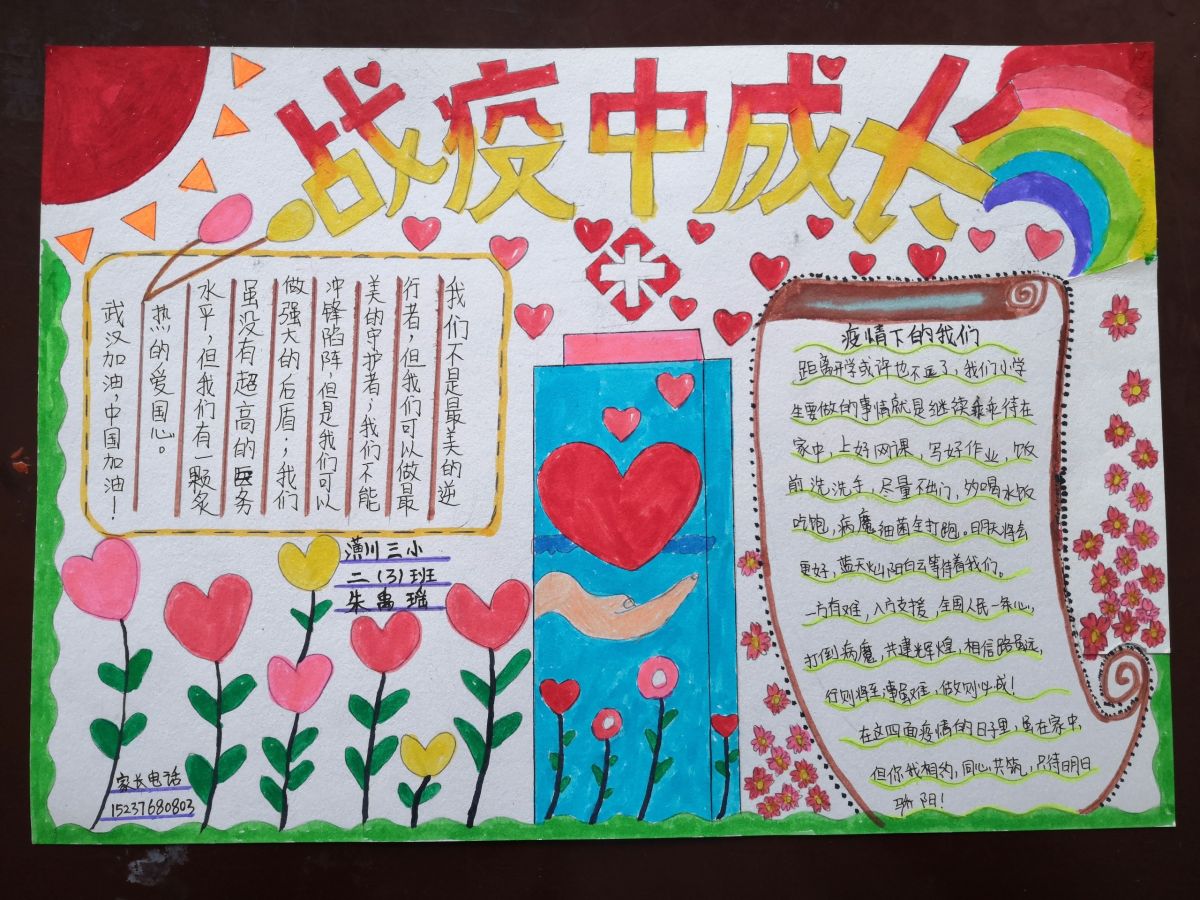 战疫中成长
我们不是最美的逆
行者,但我们可以做最
美的守护者;我们不能
冲锋陷阵,但是我们可以
做强大的后盾;我们
虽没有超高的医务
水平,但我们有一颗炙
热的爱国心。
武汉加油,中国加油!
潢川三小
二(3)班
朱禹瑶
家长电话
15237680803
疫情下的我们
距离开学或许也不远了,我们小学
生要做的事情就是继续乖乖待在
家中,上好网课,写好作业,饭
前洗洗手,尽量不出门,多喝水饭
吃饱,病魔细菌全打跑。将会
更好,蓝天灿阳白云等待着我们。
一方有难,八方支援,全国人民一条心,
打倒病魔,共建辉煌,相信路虽远,
行则将至,事虽难,做则必成!
在这四面疫情的日子里,虽在家中,
但你我相约,同心共筑,只待明日
骄阳!